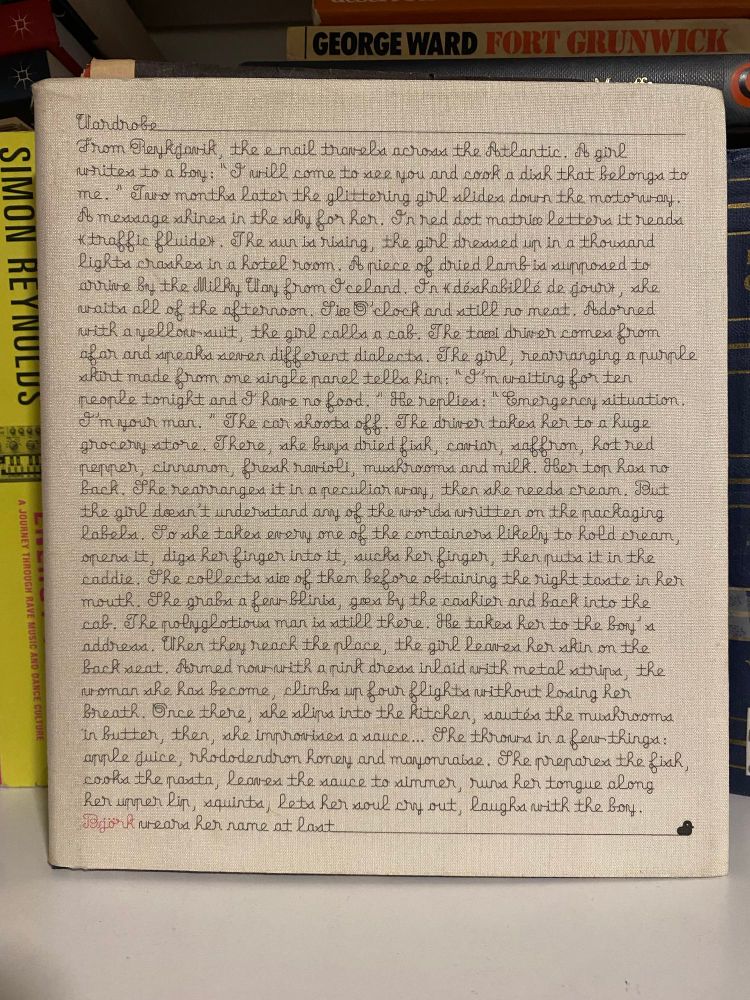 GEORGE WARD FORT GRUNWICK
SIMON REYNOLDS
A JOURNEY THROUGH RAVE MUSIC AND DANCE CULTURE
Wardrobe
From Reykjavik, the e.mail travels across the Atlantic. A girl
writes to a boy: "I will come to see you and cook a dish that belongs to
me." Two months later the glittering girl slides down the motorway.
A message shines in the sky for her. In red dot matrix letters it reads
«traffic fluide». The sun is rising, the girl dressed up in a thousand
lights crashes in a hotel room. A piece of dried lamb is supposed to
arrive by the Milky Way from Iceland. In «déshabillé de jour», she
waits all of the afternoon. Six O'clock and still no meat. Adorned
with a yellow suit, the girl calls a cab. The taxi driver comes from
afar and speaks seven different dialects. The girl, rearranging a purple
skirt made from one single panel tells him: "I'm waiting for ten
people tonight and I have no food." He replies: "Emergency situation.
I'm your man." The car shoots off. The driver takes her to a huge
grocery store. There, she buys dried fish, caviar, saffron, hot red
pepper, cinnamon, fresh ravioli, mushrooms and milk. Her top has no
back. She rearranges it in a peculiar way, then she needs cream. But
the girl doesn't understand any of the words written on the packaging
labels. So she takes every one of the containers likely to hold cream,
opens it, digs her finger into it, sucks her finger, then puts it in the
caddie. She collects six of them before obtaining the right taste in her
mouth. She grabs a few blinis, goes by the cashier and back into the
cab. The polyglotious man is still there. He takes her to the boy's
address. When they reach the place, the girl leaves her skin on the
back seat. Armed now with a pink dress inlaid with metal strips, the
woman she has become, climbs up four flights without losing her
breath. Once there, she slips into the kitchen, sautés the mushrooms
in butter, then, she improvises a sauce... She throws in a few things:
apple juice, rhododendron honey and mayonnaise. She prepares the fish,
cooks the pasta, leaves the sauce to simmer, runs her tongue along
her upper lip, squints, lets her soul cry out, laughs with the boy.
Björk wears her name at last